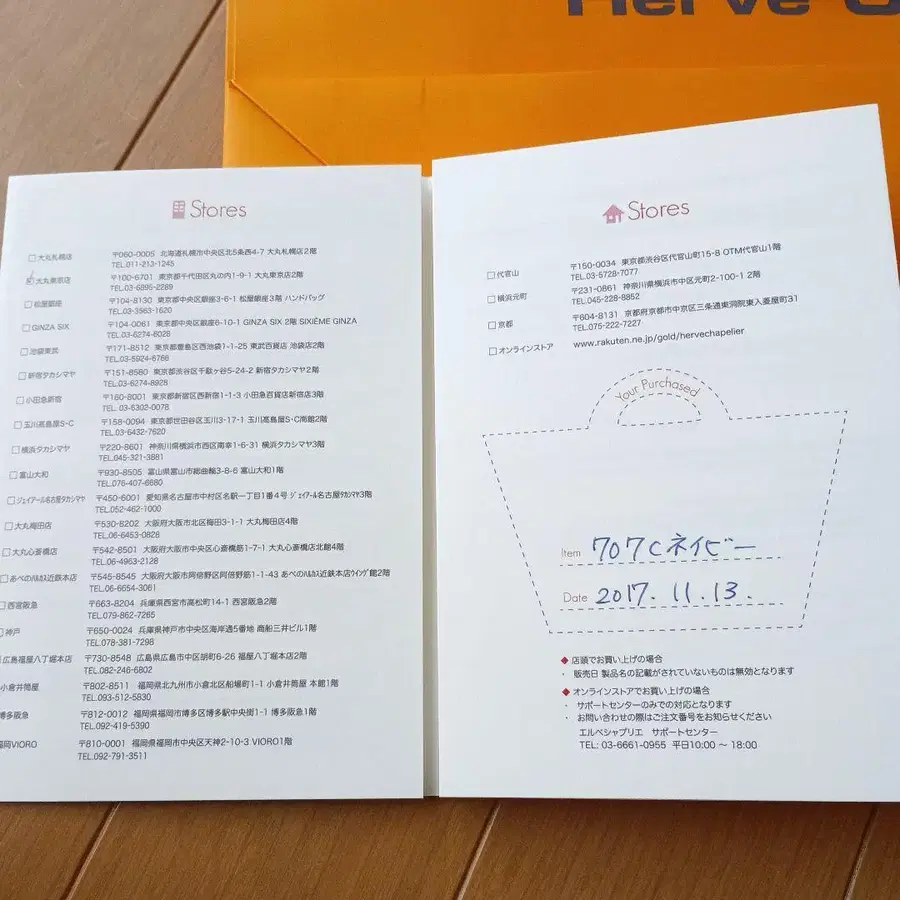 Herve
Stores
大丸札幌店 〒060-0005 北海道札幌市中央区北5条西4-7 大丸札幌店2階
TEL.011-213-1245
大丸東京店 〒100-6701 東京都千代田区丸の内1-9-1 大丸東京店2階
TEL.03-6895-2289
松屋銀座 〒104-8130 東京都中央区銀座3-6-1 松屋銀座3階 ハンドバッグ
TEL.03-3563-1620
GINZA SIX 〒104-0061 東京都中央区銀座6-10-1 GINZA SIX 2階 SIXIÈME GINZA
TEL.03-6274-6028
池袋東武 〒171-8512 東京都豊島区西池袋1-1-25 東武百貨店 池袋店2階
TEL.03-5924-6766
新宿タカシマヤ 〒151-8580 東京都渋谷区千駄ヶ谷5-24-2 新宿タカシマヤ2階
TEL.03-6274-8928
小田急新宿 〒160-8001 東京都新宿区西新宿1-1-3 小田急百貨店新宿店3階
TEL.03-6302-0078
玉川髙島屋S・C 〒158-0094 東京都世田谷区玉川3-17-1 玉川髙島屋S・C南館2階
TEL.03-6432-7620
横浜タカシマヤ 〒220-8601 神奈川県横浜市西区南幸1-6-31 横浜タカシマヤ3階
TEL.045-321-3881
富山大和 〒930-8505 富山県富山市総曲輪3-8-6 富山大和1階
TEL.076-407-6680
ジェイアール名古屋タカシマヤ 〒450-6001 愛知県名古屋市中村区名駅一丁目1番4号 ジェイアール名古屋タカシマヤ3階
TEL.052-462-1000
大丸梅田店 〒530-8202 大阪府大阪市北区梅田3-1-1 大丸梅田店4階
TEL.06-6453-0828
大丸心斎橋店 〒542-8501 大阪府大阪市中央区心斎橋筋1-7-1 大丸心斎橋店北館4階
TEL.06-4963-2128
あべのハルカス近鉄本店 〒545-8545 大阪府大阪市阿倍野区阿倍野筋1-1-43 あべのハルカス近鉄本店ウイング館2階
TEL.06-6654-3061
西宮阪急 〒663-8204 兵庫県西宮市高松町14-1 西宮阪急2階
TEL.079-862-7265
神戸 〒650-0024 兵庫県神戸市中央区海岸通5番地 商船三井ビル1階
TEL.078-381-7298
広島福屋八丁堀本店 〒730-8548 広島県広島市中区胡町6-26 福屋八丁堀本店2階
TEL.082-246-6802
小倉井筒屋 〒802-8511 福岡県北九州市小倉北区船場町1-1 小倉井筒屋 本館1階
TEL.093-512-5830
博多阪急 〒812-0012 福岡県福岡市博多区博多駅中央街1-1 博多阪急1階
TEL.092-419-5390
福岡VIORO 〒810-0001 福岡県福岡市中央区天神2-10-3 VIORO1階
TEL.092-791-3511
Stores
代官山 〒150-0034 東京都渋谷区代官山町15-8 OTM代官山1階
TEL.03-5728-7077
横浜元町 〒231-0861 神奈川県横浜市中区元町2-100-1 2階
TEL.045-228-8852
京都 〒604-8131 京都府京都市中京区三条通東洞院東入菱屋町31
TEL.075-222-7227
オンラインストア www.rakuten.ne.jp/gold/hervechapelier
Your Purchased
Item 707Cネイビー
Date 2017.11.13.
◆ 店頭でお買い上げの場合
・ 販売日 製品名の記載がされていないものは無効となります
◆ オンラインストアでお買い上げの場合
・ サポートセンターのみでの対応となります
・ お問い合わせの際はご注文番号をお知らせください
エルベシャプリエ サポートセンター
TEL: 03-6661-0955 平日10:00 ～ 18:00